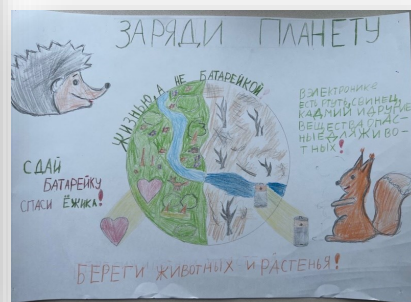 ЗАРЯДИ ПЛАНЕТУ
ЖИЗНЬЮ, А НЕ БАТАРЕЙКОЙ
В ЭЛЕКТРОНИКЕ
ЕСТЬ РТУТЬ, СВИНЕЦ,
КАДМИЙ И ДРУГИЕ
ВЕЩЕСТВА ОПАС-
НЫЕ ДЛЯ ЖИВО-
ТНЫХ!
СДАЙ
БАТАРЕЙКУ
СПАСИ ЁЖИКА!
БЕРЕГИ ЖИВОТНЫХ И РАСТЕНЬЯ!